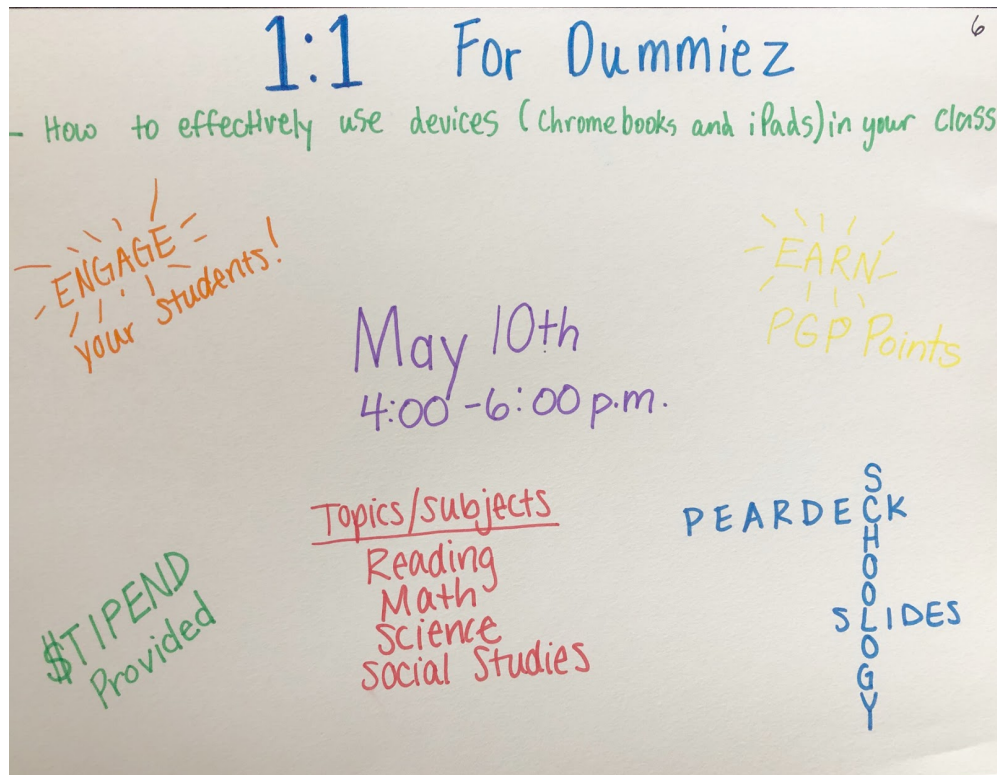 6
1:1 For Dummiez
- How to effectively use devices (Chromebooks and iPads) in your class
ENGAGE
your students!
EARN
PGP Points
May 10th
4:00-6:00 p.m.
Topics/subjects
Reading
Math
Science
Social Studies
$TIPEND
Provided
PEARDECK
SCHOOLOGY
SLIDES